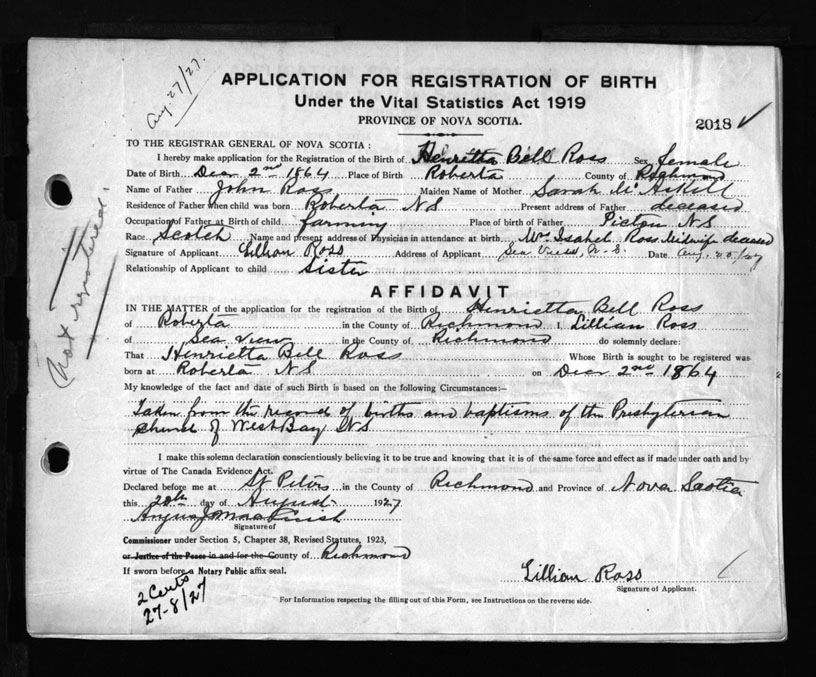 Aug. 27/27.
APPLICATION FOR REGISTRATION OF BIRTH
Under the Vital Statistics Act 1919
PROVINCE OF NOVA SCOTIA.
2018 ✓
TO THE REGISTRAR GENERAL OF NOVA SCOTIA:
I hereby make application for the Registration of the Birth of Henrietta Bell Ross Sex female
Date of Birth Decr 2nd 1864 Place of Birth Roberta County of Richmond
Name of Father John Ross Maiden Name of Mother Sarah McAskill
Residence of Father when child was born Roberta N S Present address of Father deceased
Occupation of Father at Birth of child farming Place of birth of Father Picton N.S
Race Scotch Name and present address of Physician in attendance at birth Mrs Isabel Ross Midwife deceased
Signature of Applicant Lillian Ross Address of Applicant Sea View, N.S. Date Aug. 20/27
Relationship of Applicant to child sister
not registered.
AFFIDAVIT
IN THE MATTER of the application for the registration of the Birth of Henrietta Bell Ross
of Roberta in the County of Richmond I, Lillian Ross
of Sea View in the County of Richmond do solemnly declare:
That Henrietta Bell Ross Whose Birth is sought to be registered was
born at Roberta N S on Decr 2nd 1864
My knowledge of the fact and date of such Birth is based on the following Circumstances:—
Taken from the record of births and baptisms of the Presbyterian
church of West Bay N S
I make this solemn declaration conscientiously believing it to be true and knowing that it is of the same force and effect as if made under oath and by
virtue of The Canada Evidence Act.
Declared before me at St Peters in the County of Richmond and Province of Nova Scotia
this 20th day of August 1927
Signature of
Commissioner under Section 5, Chapter 38, Revised Statutes, 1923,
or Justice of the Peace in and for the County of Richmond
If sworn before a Notary Public affix seal.
Lillian Ross
Signature of Applicant.
2 Certs
27-8/27
For Information respecting the filling out of this Form, see Instructions on the reverse side.